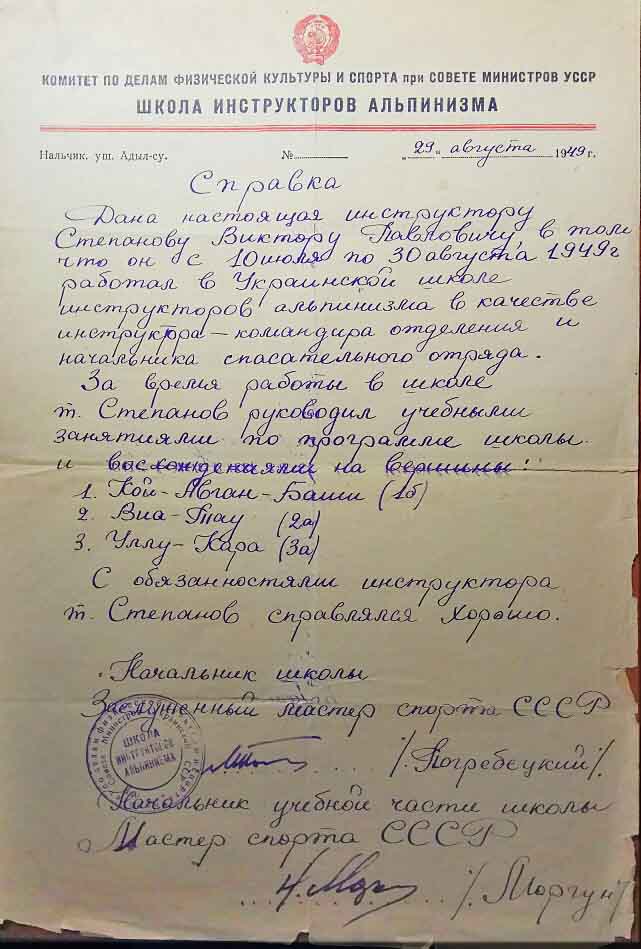 КОМИТЕТ ПО ДЕЛАМ ФИЗИЧЕСКОЙ КУЛЬТУРЫ И СПОРТА при СОВЕТЕ МИНИСТРОВ УССР
ШКОЛА ИНСТРУКТОРОВ АЛЬПИНИЗМА
Нальчик. ущ. Адыл-су. № „29„ августа 1949 г.
Справка
Дана настоящая инструктору
Степанову Виктору Павловичу, в том
что он с 10 июля по 30 августа 1949 г
работал в Украинской школе
инструкторов альпинизма в качестве
инструктора — командира отделения и
начальника спасательного отряда.
За время работы в школе
т. Степанов руководил учебными
занятиями по программе школы
и восхождениями на вершины:
1. Кой-Авган-Баши (1б)
2. Виа-Тау (2а)
3. Уллу-Кара (3а)
С обязанностями инструктора
т. Степанов справлялся хорошо.
Начальник школы
Заслуженный мастер спорта СССР
ШКОЛА
ИНСТРУКТОРОВ
АЛЬПИНИЗМА
/Погребецкий/.
Начальник учебной части школы
Мастер спорта СССР
/Моргун/